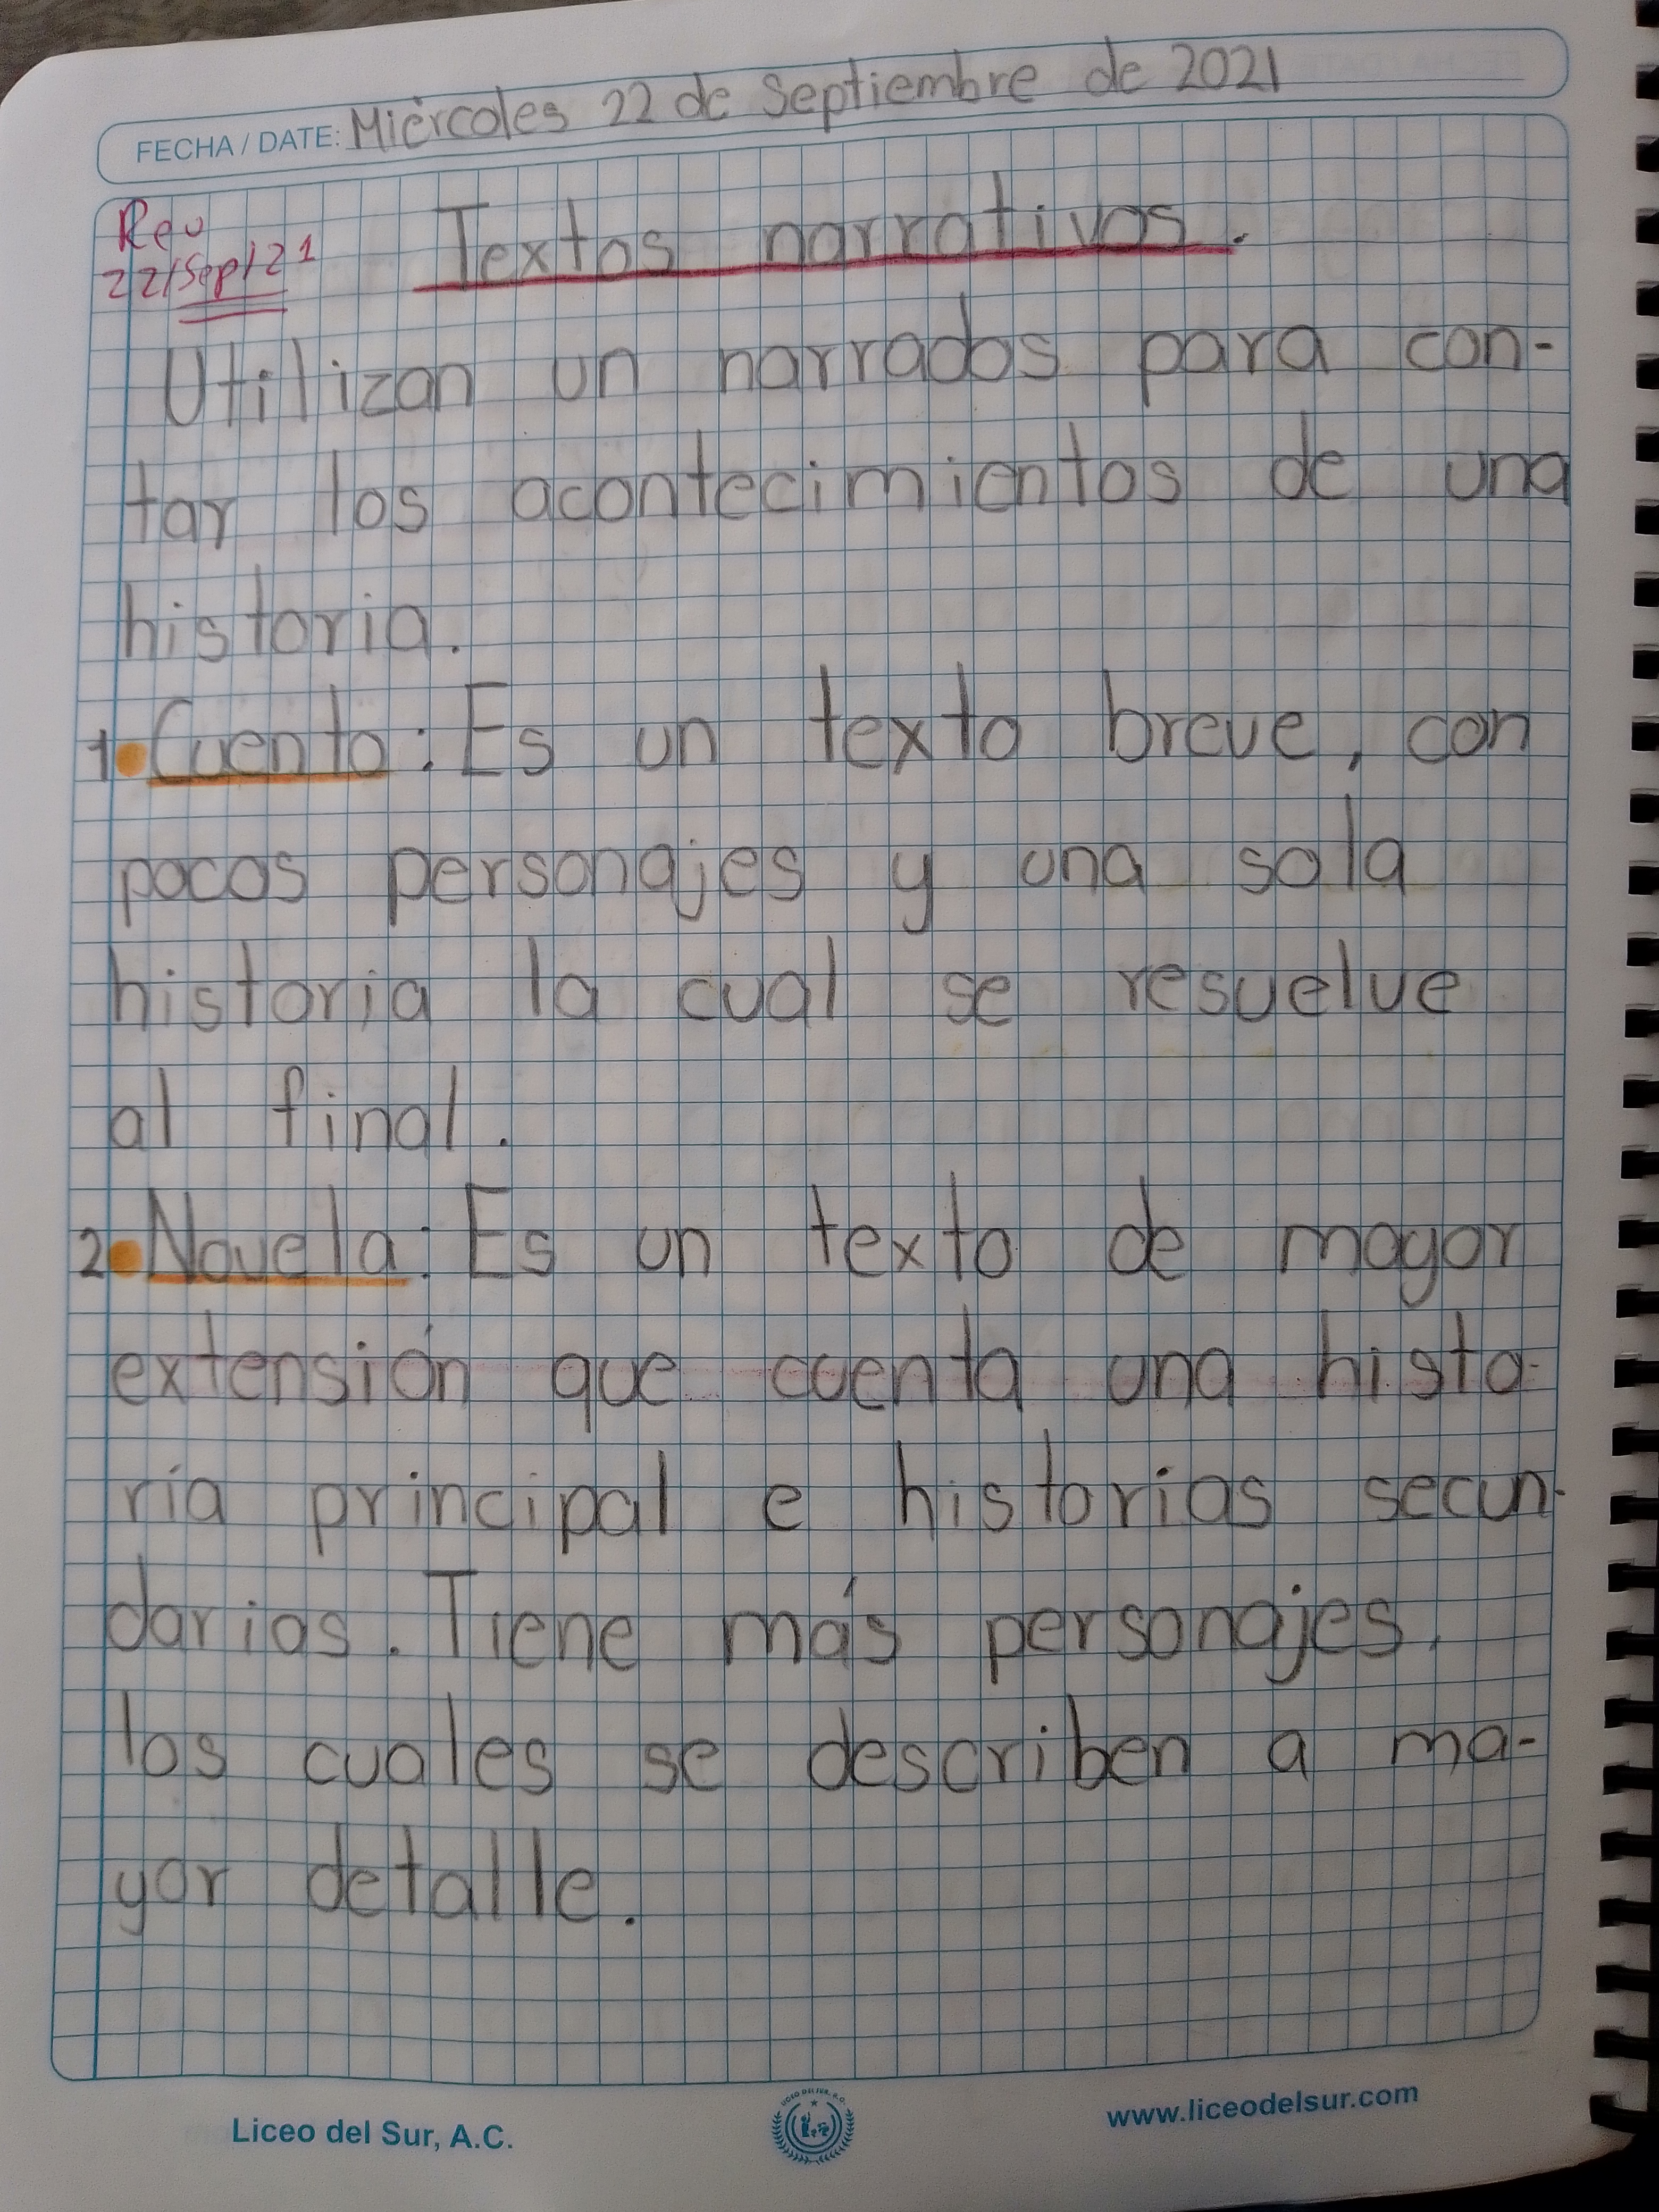 FECHA / DATE: Miércoles 22 de Septiembre de 2021
Rev
22/Sep/21
Textos narrativos.
Utilizan un narrados para con-
tar los acontecimientos de una
historia.
1. Cuento: Es un texto breve, con
pocos personajes y una sola
historia la cual se resuelve
al final.
2. Novela: Es un texto de mayor
extensión que cuenta una histo-
ría principal e historias secun-
darias. Tiene más personajes,
los cuales se describen a ma-
yor detalle.
Liceo del Sur, A.C.
LICEO DEL SUR, A.C.
www.liceodelsur.com